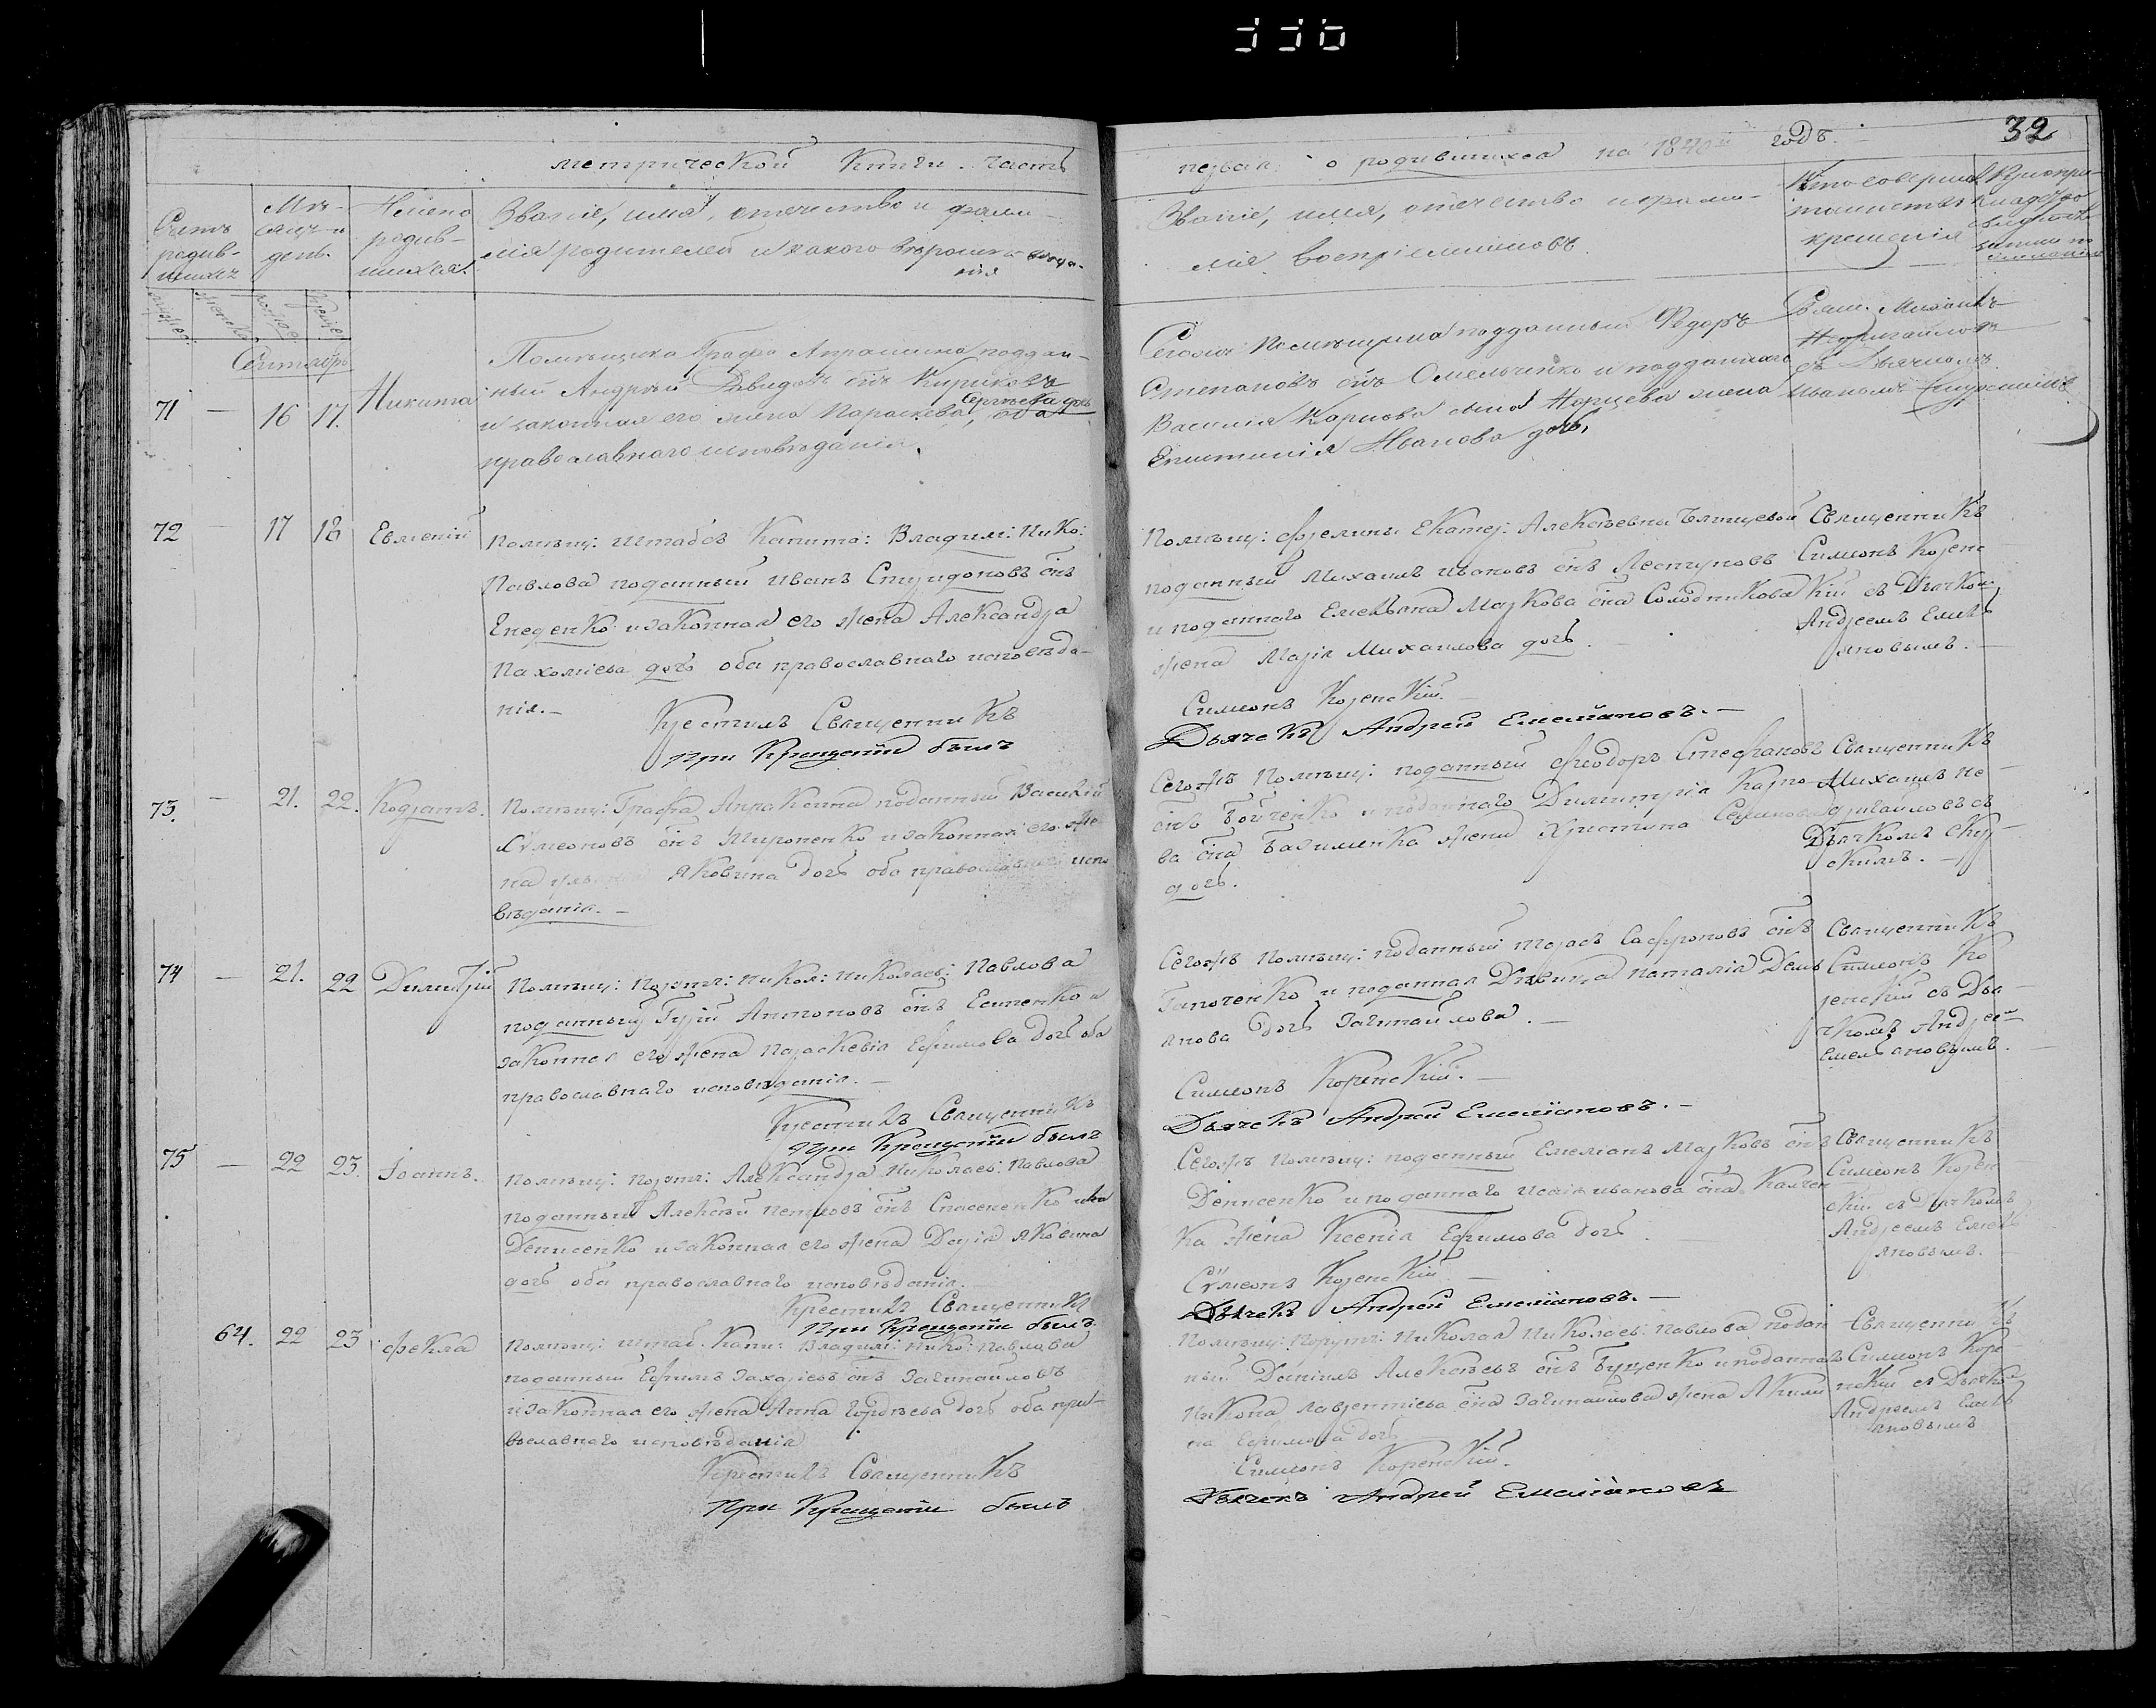 336
32
метрической Книги часть
первая о родившихся на 1840й годъ.
Счетъ родив-шихся
Мѣ-сяцъ и день.
Имено родив-шихся.
Званіе, имя, отечество и фами-
лія родителей и какого вѣроиспо
Званіе, имя, отечество и фами-
лія воспріемниковъ.
Кто совершалъ
таинство
крещенія
Сентябрь
71 — 16 17. Никита
Помѣщика Графа Апраксина поддан-
ный Андрей Давидовъ снъ Кириковъ
и законная его жена Параскева Сергѣева дочь, оба
православнаго исповѣданія.
Сегожъ Помѣщика подданный Федоръ
Степановъ снъ Омельченко и подданнаго
Василия Карпова сына жена
Епистинія Иванова дочь,
Свящ. Михаилъ
съ Дьячкомъ
72 — 17 18 Евменій
Помѣщ: Штабсъ Капита: Владим: Нико:
Павлова поданный Иванъ Спиридоновъ снъ
и законная его жена Александра
Пахоміева дочь оба православнаго исповѣда-
нія.—
Крестилъ Священникъ
При Крещеніи былъ
Помѣщ: Фрелины Екатер: Алексѣевны
поданный Михаилъ Ивановъ снъ Леспуновъ
и поданнаго Емельяна Маркова сна Солодникова
жена Марія Михаилова дочь.
Симеонъ Коренскій.—
Дьячекъ Андрей Емелiановъ.—
Священникъ
Симеонъ Корен-
скій съ Дьячком
Андреемъ Емель
яновымъ.—
73. — 21. 22. Кодратъ.
Помѣщ: Графа Апраксина поданный Василій
Сѵмеоновъ снъ Мироненко и законная его же
на Яковина дочь оба православнаго испо
вѣданія.—
Сегожъ Помѣщ: поданный Феодоръ Стефановъ
снъ Бойченко и поданнаго Димитрія Карпо
ва сна жена Христина Семинова
дочь.
Священникъ
Михаилъ Не-
дригайловъ съ
Дьячкомъ
74 — 21. 22 Димитрій
Помѣщ: Поруч: Никол: Николаев: Павлова
поданный Гурій Антоновъ снъ Есипенко и
законная его жена Параскевія Ефимова дочь оба
православнаго исповѣданія.—
Крестилъ Священникъ
При Крещеніи былъ
Сегожъ Помѣщ: поданный Тарасъ Сафроновъ снъ
Гапоченко и поданная Дѣвица Наталія Демь
янова дочь Загинайлова.—
Симеонъ Коренскій.—
Дьячекъ Андрей Емелiановъ.—
Священникъ
Симеонъ Ко
ренскій съ Дья-
чкомъ Андрее
Емельяновымъ.—
75 — 22 23. Іоаннъ.
Помѣщ: Поруч: Александра Николаев: Павлова
поданный Алексѣй Петровъ снъ Спасененко
Денисенко и законная его жена Дарія Яковина
дочь оба православнаго исповѣданія.
Крестилъ Священникъ
При Крещеніи былъ
Сегожъ Помѣщ: поданный Емелианъ Марковъ снъ
Денисенко и поданнаго Исаія Иванова сна Калчен
ка жена Ксенія Ефимова дочь
Сѵмеонъ Коренскій.—
Дьячекъ Андрей Емелiановъ.—
Священникъ
Симеонъ Корен
скій съ Дьячкомъ
Андреемъ Емель
яновымъ.
64. 22 23 Фекла
Помѣщ: Штаб: Капи: Владим: Нико: Павлова
поданный Ефимъ Захаріевъ снъ Загинайловъ
и законная его жена Анна Гордѣева дочь оба пра-
вославнаго исповѣданія
Крестилъ Священникъ
При Крещеніи былъ
Помѣщ: Поруч: Николая Николаев: Павлова подан
ный Даніилъ Алексѣевъ снъ Буценко и поданнаго
Никона Лаврентіева сна Загинайлова жена Акили
на Ефимова дочь
Симеонъ Коренскій.
Дьячекъ Андрей Емелiановъ
Священникъ
Симеонъ Коре-
нскій съ Дьячко
Андреемъ Емель
яновымъ